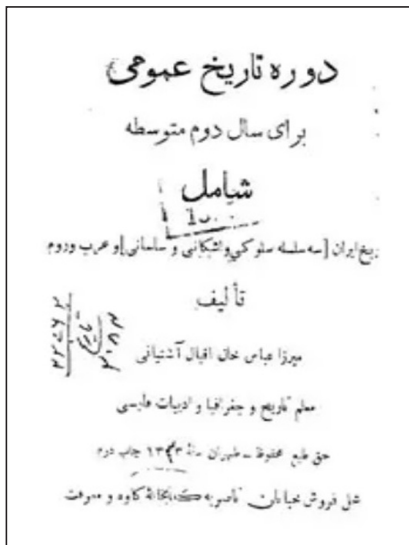 دوره تاریخ عمومی
برای سال دوم متوسطه
شامل
ریخ ایران [سه سلسله سلوکی و اشکانی و ساسانی] و عرب و روم
تألیف
میرزا عباس خان اقبال آشتیانی
معلم تاریخ و جغرافیا و ادبیات فارسی
حق طبع محفوظ – طهران سنهٔ چاپ دوم
محل فروش خیابان ناصریه کتابخانهٔ کاوه و معرفت